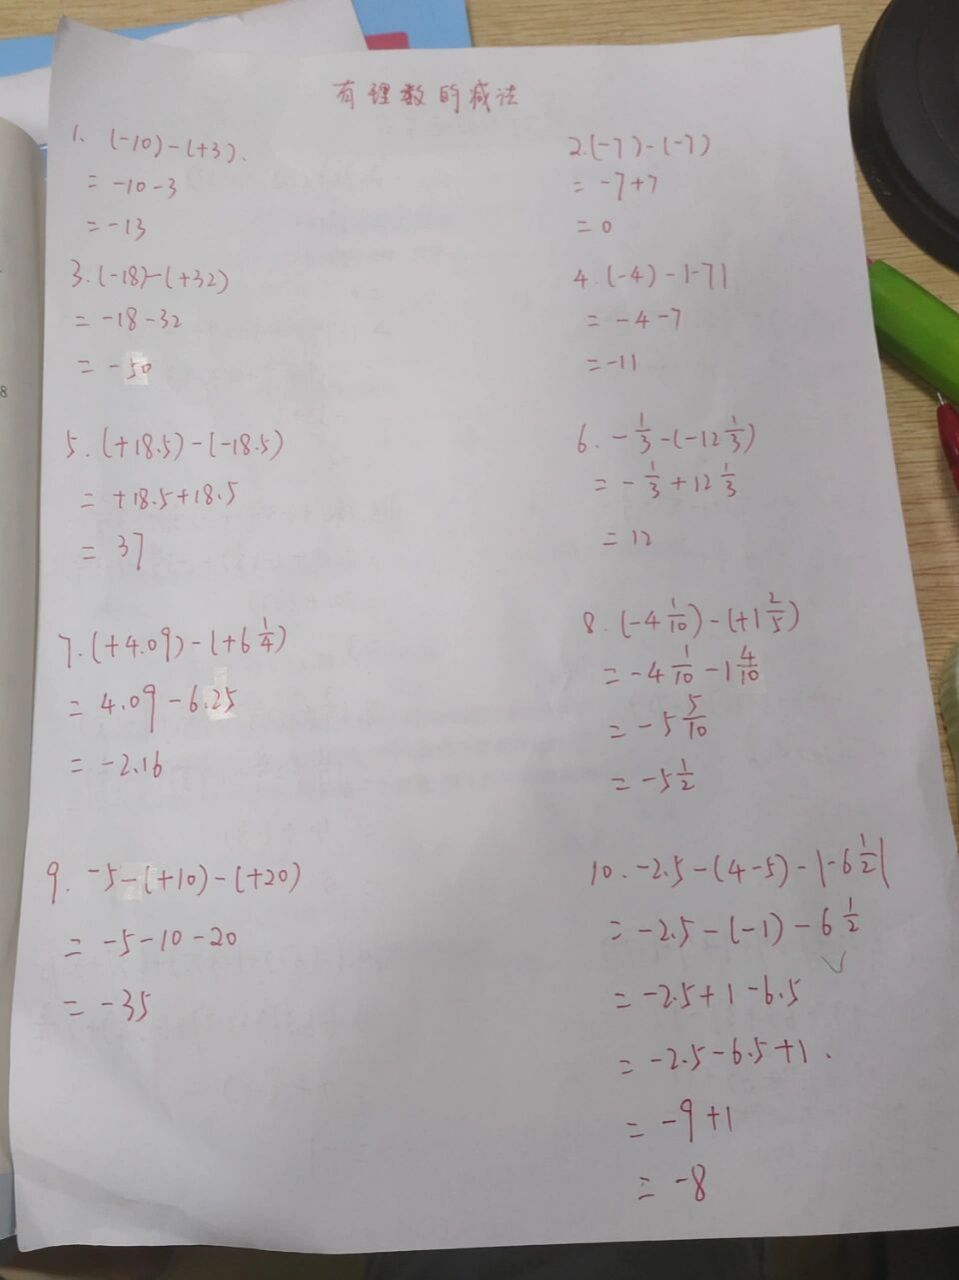 有理数的减法
1. (-10)-(+3).
= -10-3
= -13
2.(-7)-(-7)
= -7+7
= 0
3.(-18)-(+32)
= -18-32
= -50
4.(-4)-|-7|
= -4-7
= -11
5.(+18.5)-(-18.5)
= +18.5+18.5
= 37
6. -1/3-(-12 1/3)
= -1/3+12 1/3
= 12
7.(+4.09)-(+6 1/4)
= 4.09-6.25
= -2.16
8.(-4 1/10)-(+1 2/5)
= -4 1/10-1 4/10
= -5 5/10
= -5 1/2
9. -5-(+10)-(+20)
= -5-10-20
= -35
10. -2.5-(4-5)-|-6 1/2|
= -2.5-(-1)-6 1/2
= -2.5+1-6.5
= -2.5-6.5+1.
= -9+1
= -8
8